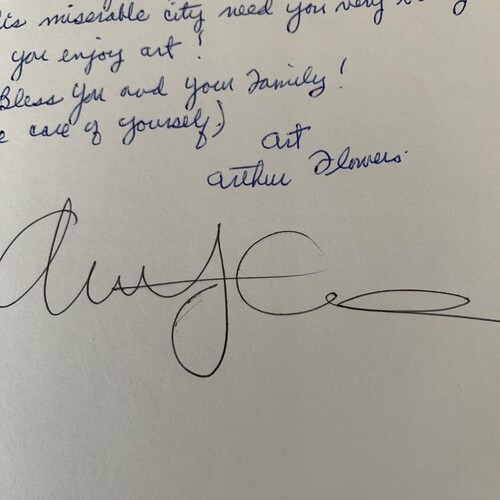 is miserable city need you very
you enjoy art!
Bless you and your Family!
care of yourself)
Art
Arthur Flowers